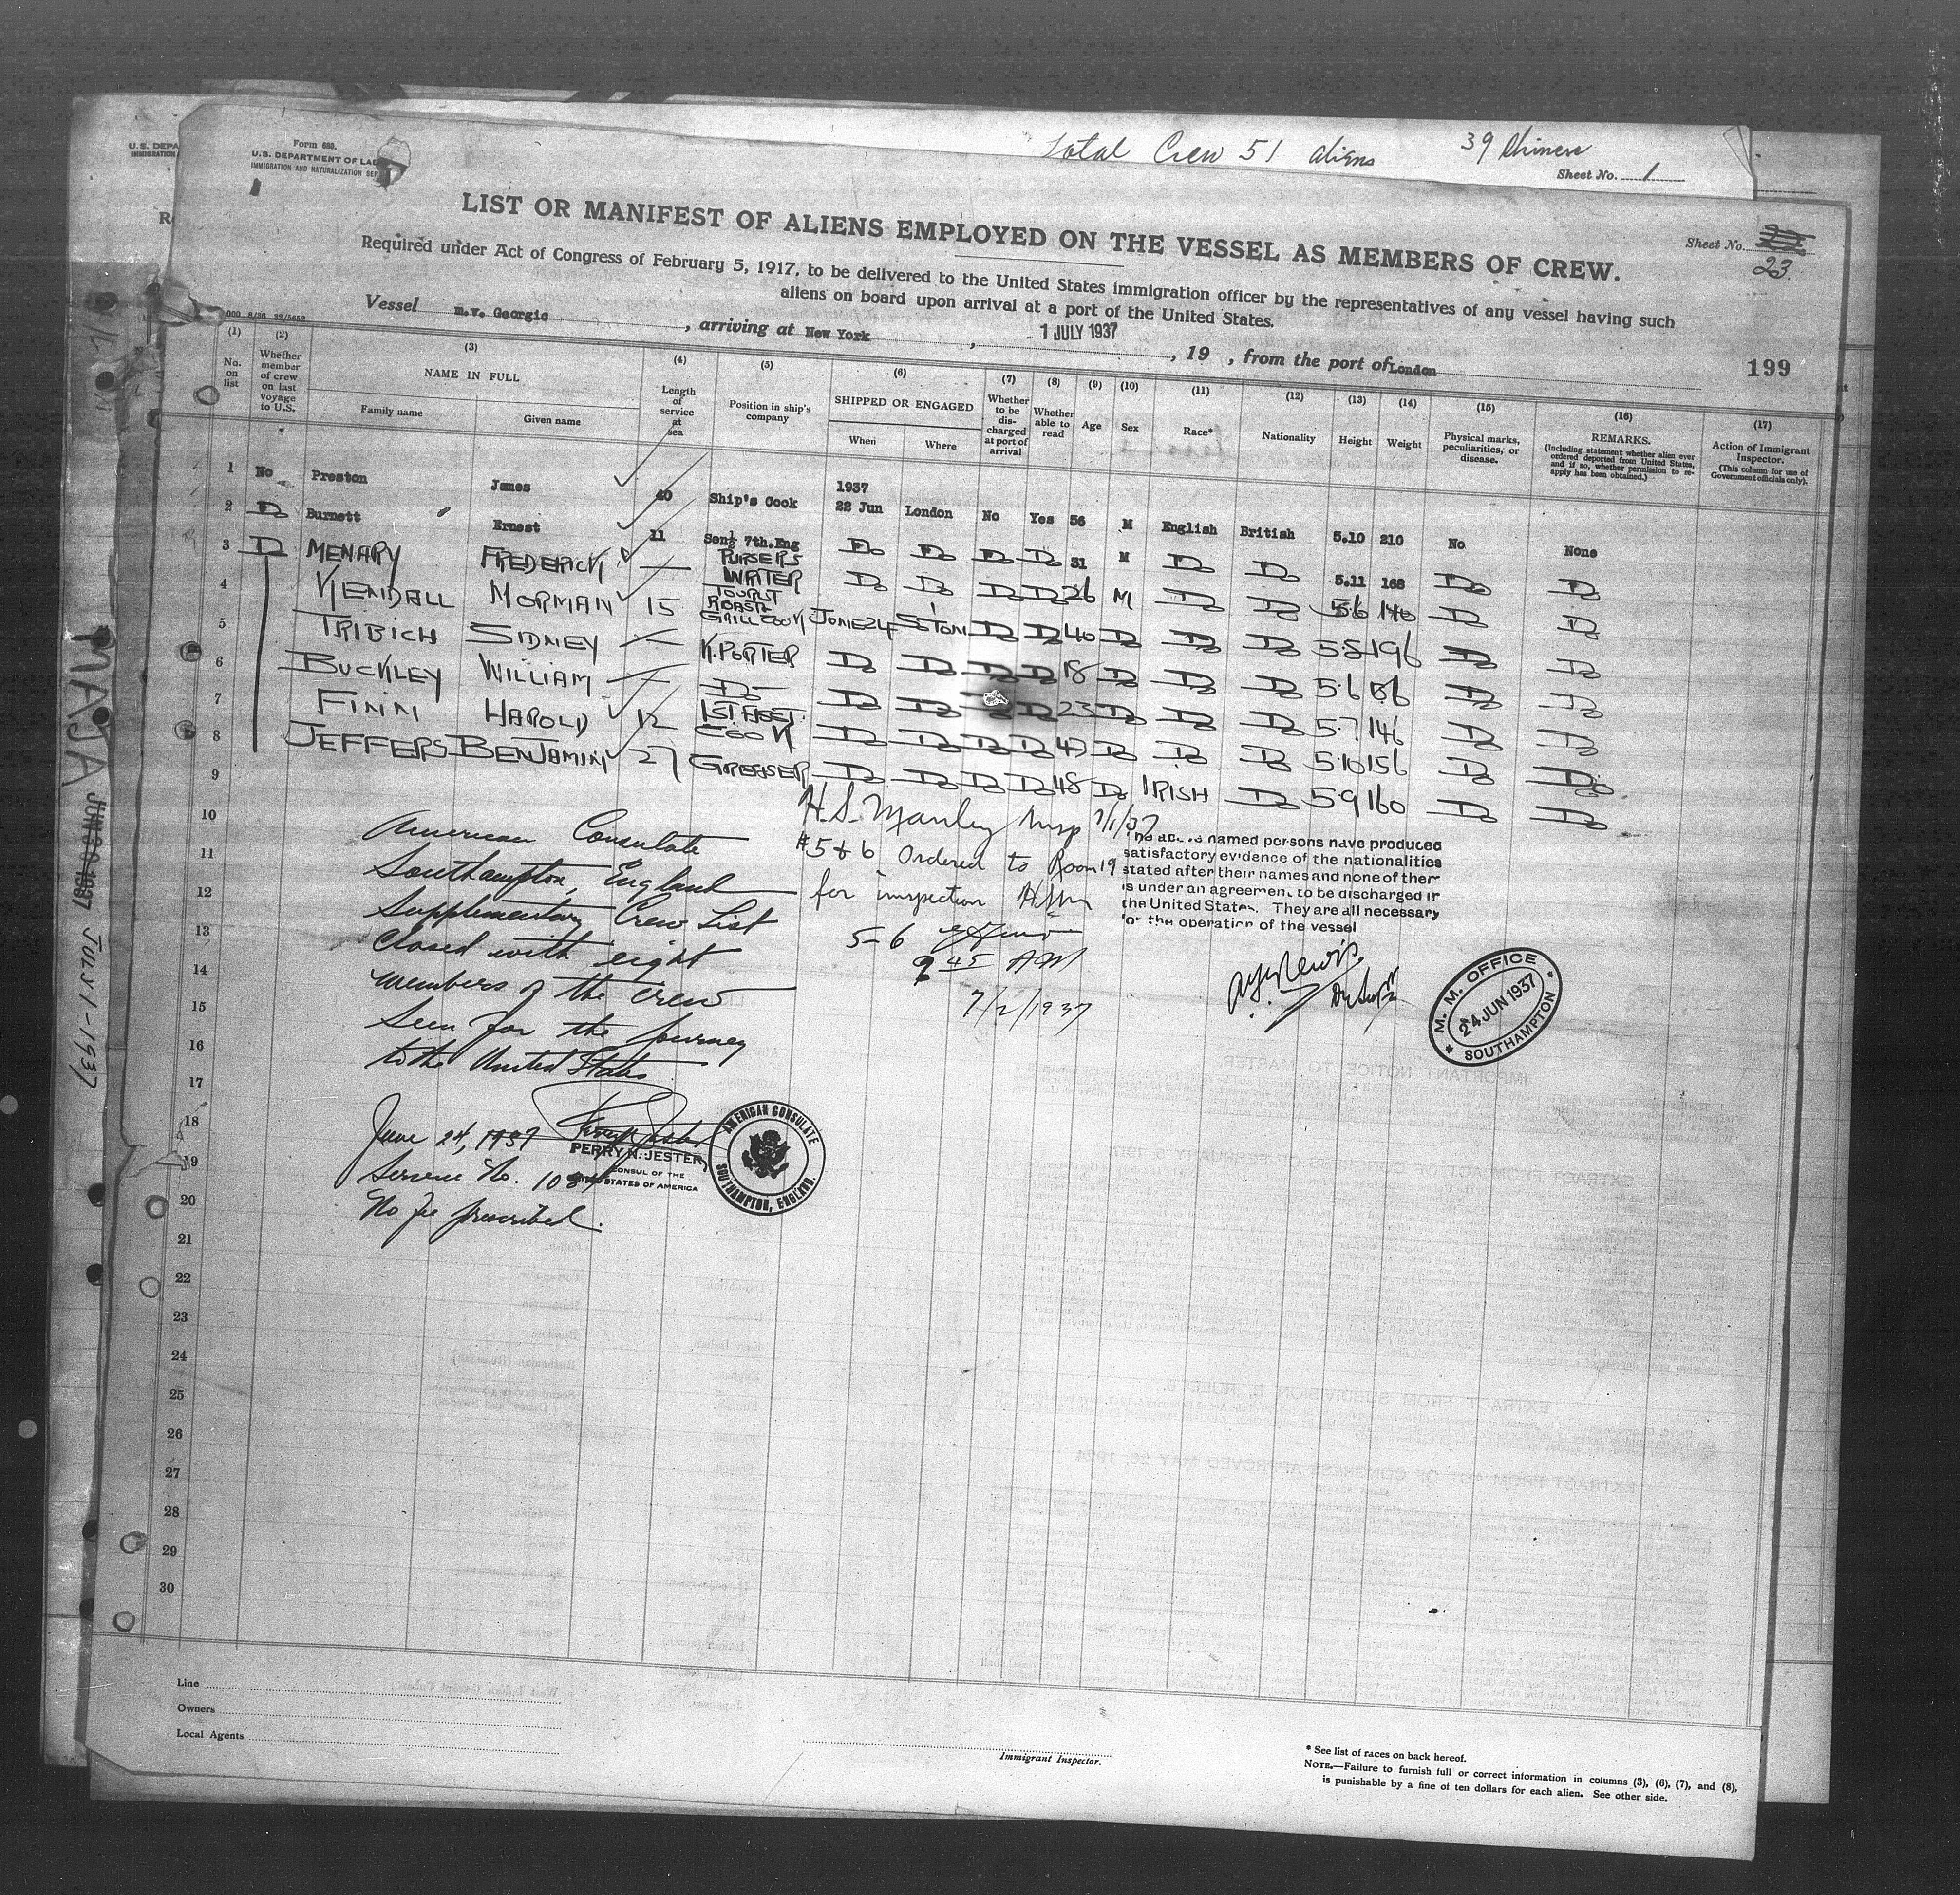 Total Crew 51 aliens 39 Chinese
Sheet No. 1
Form 680.
U.S. DEPARTMENT OF LAB
IMMIGRATION AND NATURALIZATION SER
LIST OR MANIFEST OF ALIENS EMPLOYED ON THE VESSEL AS MEMBERS OF CREW.
Sheet No. 23.
Required under Act of Congress of February 5, 1917, to be delivered to the United States immigration officer by the representatives of any vessel having such
aliens on board upon arrival at a port of the United States.
Vessel m.v. Georgic, arriving at New York, 1 JULY 1937, 19 , from the port of London
199
(1) No. on list
(2) Whether member of crew on last voyage to U.S.
(3) NAME IN FULL Family name Given name
(4) Length of service at sea
(5) Position in ship's company
(6) SHIPPED OR ENGAGED When Where
(7) Whether to be discharged at port of arrival
(8) Whether able to read
(9) Age
(10) Sex
(11) Race*
(12) Nationality
(13) Height
(14) Weight
(15) Physical marks, peculiarities, or disease.
(16) REMARKS. (Including statement whether alien ever ordered deported from United States, and if so, whether permission to reapply has been obtained.)
(17) Action of Immigrant Inspector. (This column for use of Government officials only).
1 No Preston James 40 Ship's Cook 1937 22 Jun London No Yes 56 M English British 5.10 210 No None
2 Do Burnett Ernest 11 Sen½ 7th.Eng Do Do Do Do 31 M Do Do 5.11 168 Do Do
3 Do MENARY FREDERICK — PURSERS WRITER Do Do Do Do 26 M Do Do 5.6 140 Do Do
4 KENDALL NORMAN 15 TOURIST ROAST & GRILL COOK JUNE 24 S'TON Do Do 40 Do Do Do 5.8 196 Do Do
5 TRIBICH SIDNEY — K. PORTER Do Do Do Do 18 Do Do Do 5.6 Do Do
6 BUCKLEY WILLIAM — Do Do Do Do 23 Do Do Do 5.7 146 Do Do
7 FINN HAROLD 12 1ST ASST. COOK Do Do Do Do Do Do Do 5.10 156 Do Do
8 JEFFERS BENJAMIN 27 GREASER Do Do Do Do 48 Do IRISH Do 5.9 160 Do Do
9
10
11
12
13
14
15
16
17
18
19
20
21
22
23
24
25
26
27
28
29
30
American Consulate
Southampton, England
Supplementary Crew List
Closed with eight
members of the crew
Seen for the journey
to the United States.
June 24, 1937
PERRY N. JESTER,
CONSUL OF THE
UNITED STATES OF AMERICA
Service No.
No fee prescribed.
AMERICAN CONSULATE
SOUTHAMPTON, ENGLAND.
H.S. Manley Insp 7/1/37
#5 & 6 Ordered to Room 19
for inspection HSM
5-6
9 45 AM
7/2/1937
named persons have produced
satisfactory evidence of the nationalities
stated after their names and none of them
is under an agreement to be discharged in
the United States. They are all necessary
for the operation of the vessel
M. M. OFFICE
24 JUN 1937
SOUTHAMPTON
MAJA
JUN 30 1937 JULY 1-1937
Line
Owners
Local Agents
Immigrant Inspector.
* See list of races on back hereof.
NOTE.—Failure to furnish full or correct information in columns (3), (6), (7), and (8),
is punishable by a fine of ten dollars for each alien. See other side.